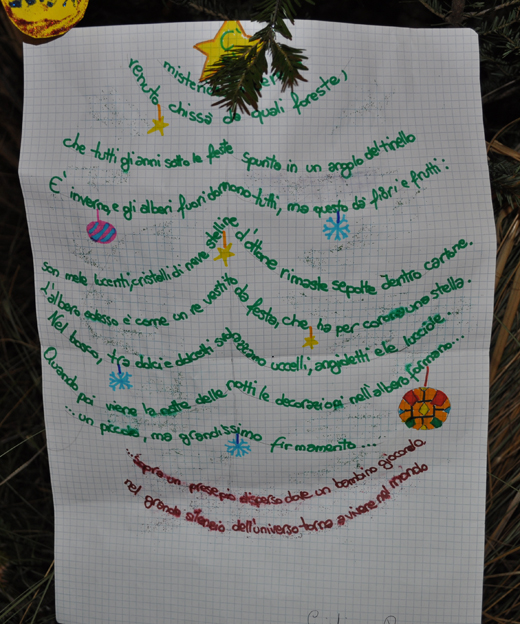 C'
misterioso
venuto chissà da quali foreste,
che tutti gli anni sotto le feste spunta in un angolo del tinello
E' inverno, e gli alberi fuori dormono tutti, ma questo dà fiori e frutti:
son mele lucenti, cristalli di neve, stelline d'ottone rimaste sepolte dentro cartone.
L'albero adesso è come un re vestito da festa, che ha per corona una stella.
Nel bosco, tra dolci e dolcetti svolazzano uccelli, angioletti e le lucciole...
Quando poi viene la notte delle notti le decorazioni nell'albero formano...
...un piccolo, ma grandissimo firmamento...
...sopra un presepio disperso dove un bambino giocondo,
nel grande silenzio dell'universo torna a vivere nel mondo